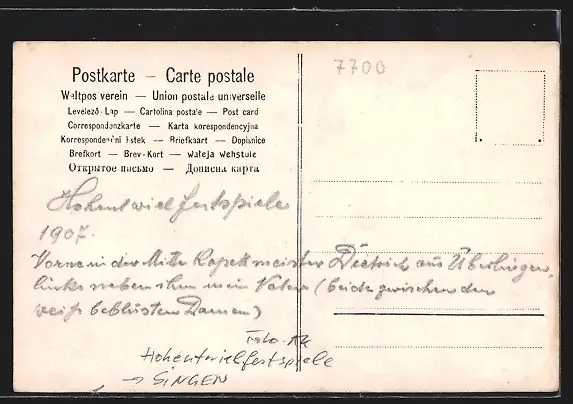 Postkarte — Carte postale
Weltpostverein — Union postale universelle
Levelező-Lap — Cartolina postale — Post card
Correspondenzkarte — Karta korespondencyjna
Korrespondenční lístek — Briefkaart — Dopisnice
Brefkort — Brev-Kort — Waleja Wehstule
Открытое письмо — Дописна карта
7700
Hohentwielfestspiele
1907.
Vorne in der Mitte Kapellmeister Dietrich aus Überlingen,
links neben ihm mein Vater (beide zwischen den
weiß beblusten Damen)
Foto-AK
Hohentwielfestspiele
→ SINGEN